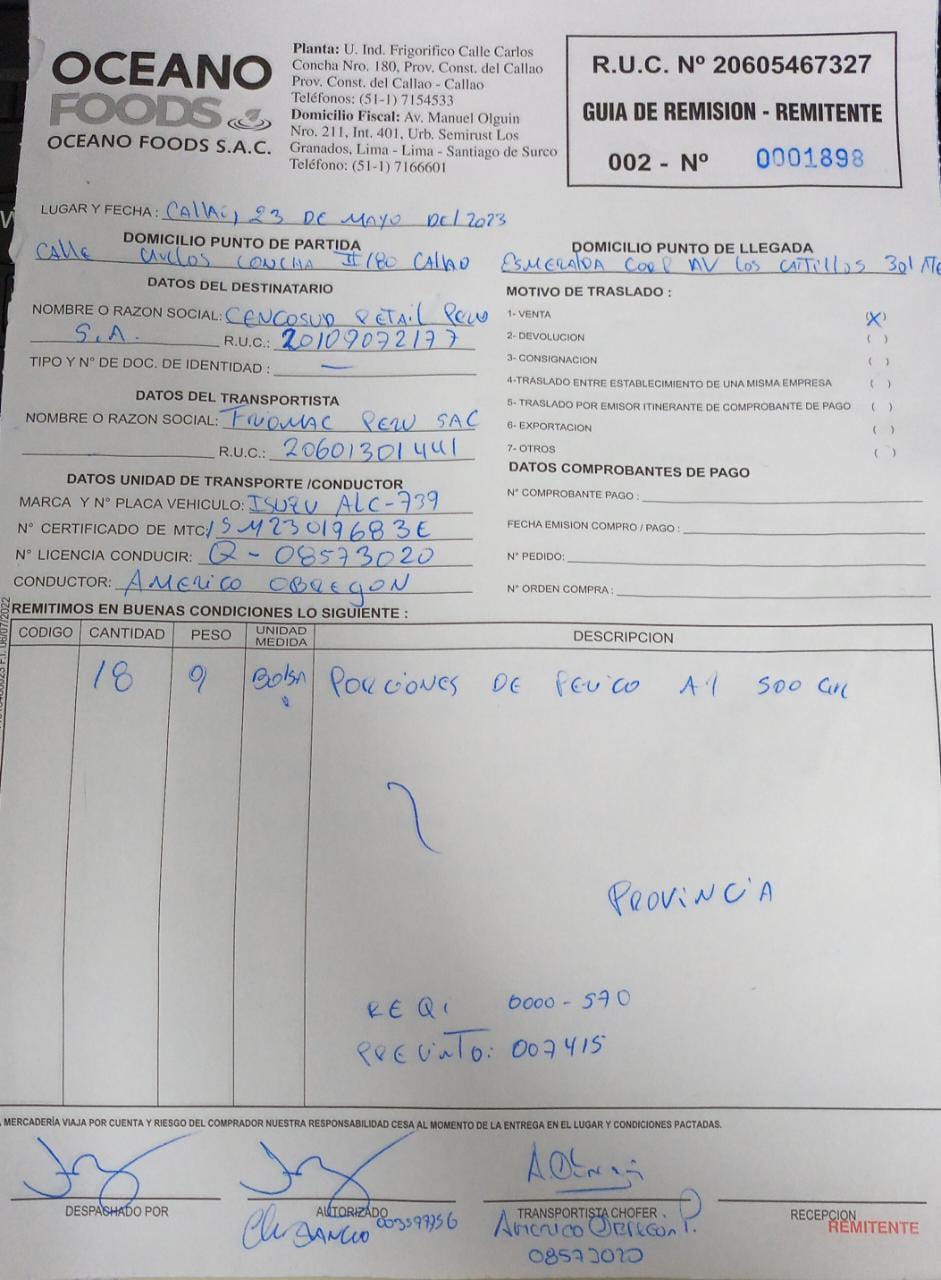 OCEANO
FOODS
OCEANO FOODS S.A.C.
Planta: U. Ind. Frigorifico Calle Carlos
Concha Nro. 180, Prov. Const. del Callao
Prov. Const. del Callao - Callao
Teléfonos: (51-1) 7154533
Domicilio Fiscal: Av. Manuel Olguin
Nro. 211, Int. 401, Urb. Semirust Los
Granados, Lima - Lima - Santiago de Surco
Teléfono: (51-1) 7166601
R.U.C. Nº 20605467327
GUIA DE REMISION - REMITENTE
002 - Nº 0001898
LUGAR Y FECHA: CALLAO, 23 DE MAYO DEL 2023
DOMICILIO PUNTO DE PARTIDA
CALLE CARLOS CONCHA #180 CALLAO
DOMICILIO PUNTO DE LLEGADA
ESMERALDA CORP AV LOS 301 ATE
DATOS DEL DESTINATARIO
NOMBRE O RAZON SOCIAL: CENCOSUD RETAIL PERU
S.A. R.U.C.: 20109072177
TIPO Y N° DE DOC. DE IDENTIDAD : —
DATOS DEL TRANSPORTISTA
NOMBRE O RAZON SOCIAL: FRIOMAC PERU SAC
R.U.C.: 20601301441
DATOS UNIDAD DE TRANSPORTE /CONDUCTOR
MARCA Y N° PLACA VEHICULO: ISUZU ALC-739
N° CERTIFICADO DE MTC: 15M23019683E
N° LICENCIA CONDUCIR: Q-08573020
CONDUCTOR: AMERICO OBREGON
MOTIVO DE TRASLADO :
1- VENTA (X)
2- DEVOLUCION ( )
3- CONSIGNACION ( )
4-TRASLADO ENTRE ESTABLECIMIENTO DE UNA MISMA EMPRESA ( )
5- TRASLADO POR EMISOR ITINERANTE DE COMPROBANTE DE PAGO ( )
6- EXPORTACION ( )
7- OTROS ( )
DATOS COMPROBANTES DE PAGO
N° COMPROBANTE PAGO :
FECHA EMISION COMPRO / PAGO :
N° PEDIDO:
N° ORDEN COMPRA :
REMITIMOS EN BUENAS CONDICIONES LO SIGUIENTE :
CODIGO CANTIDAD PESO UNIDAD MEDIDA DESCRIPCION
18 9 Bolsa PORCIONES DE PERICO A1 500 GR
PROVINCIA
REQ: 0000-570
PRECINTO: 007415
MERCADERÍA VIAJA POR CUENTA Y RIESGO DEL COMPRADOR NUESTRA RESPONSABILIDAD CESA AL MOMENTO DE LA ENTREGA EN EL LUGAR Y CONDICIONES PACTADAS.
DESPACHADO POR
AUTORIZADO
TRANSPORTISTA CHOFER
Americo Obregon P.
08573020
RECEPCION
REMITENTE